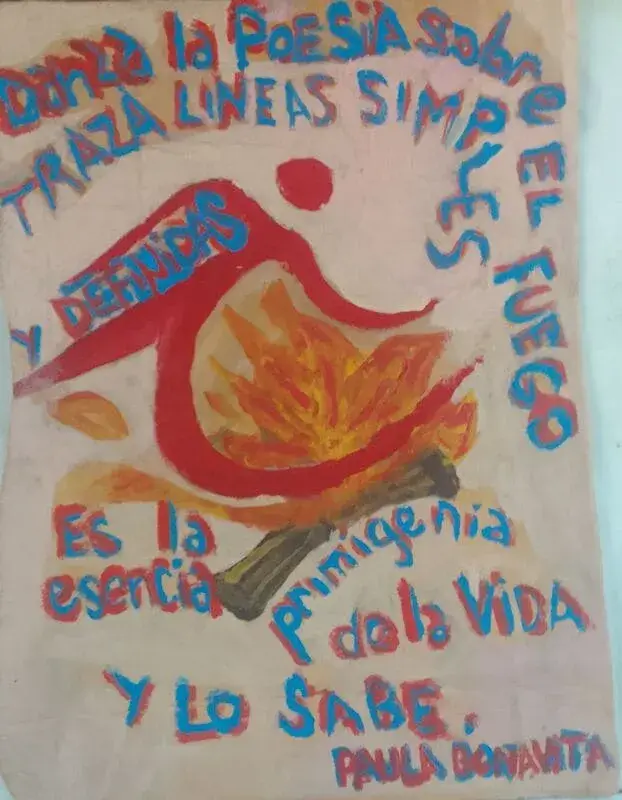 Danza la POESIA sobre EL FUEGO
TRAZA LINEAS SIMPLES
Y DEFINIDAS
Es la
esencia
primigenia
de la VIDA
Y LO SABE.
PAULA BONAVITA